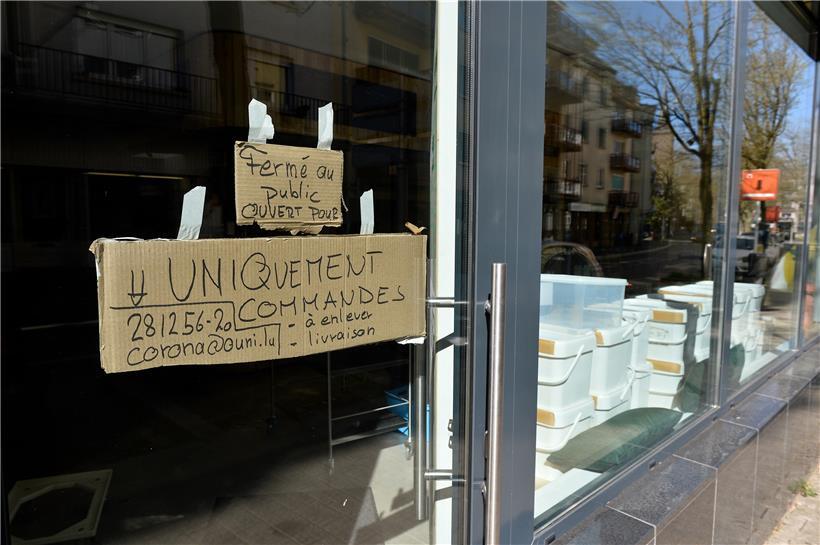 Fermé au
public
OUVERT POUR
UNIQUEMENT
COMMANDES
281256-20
- à enlever
corona@ouni.lu
- livraison